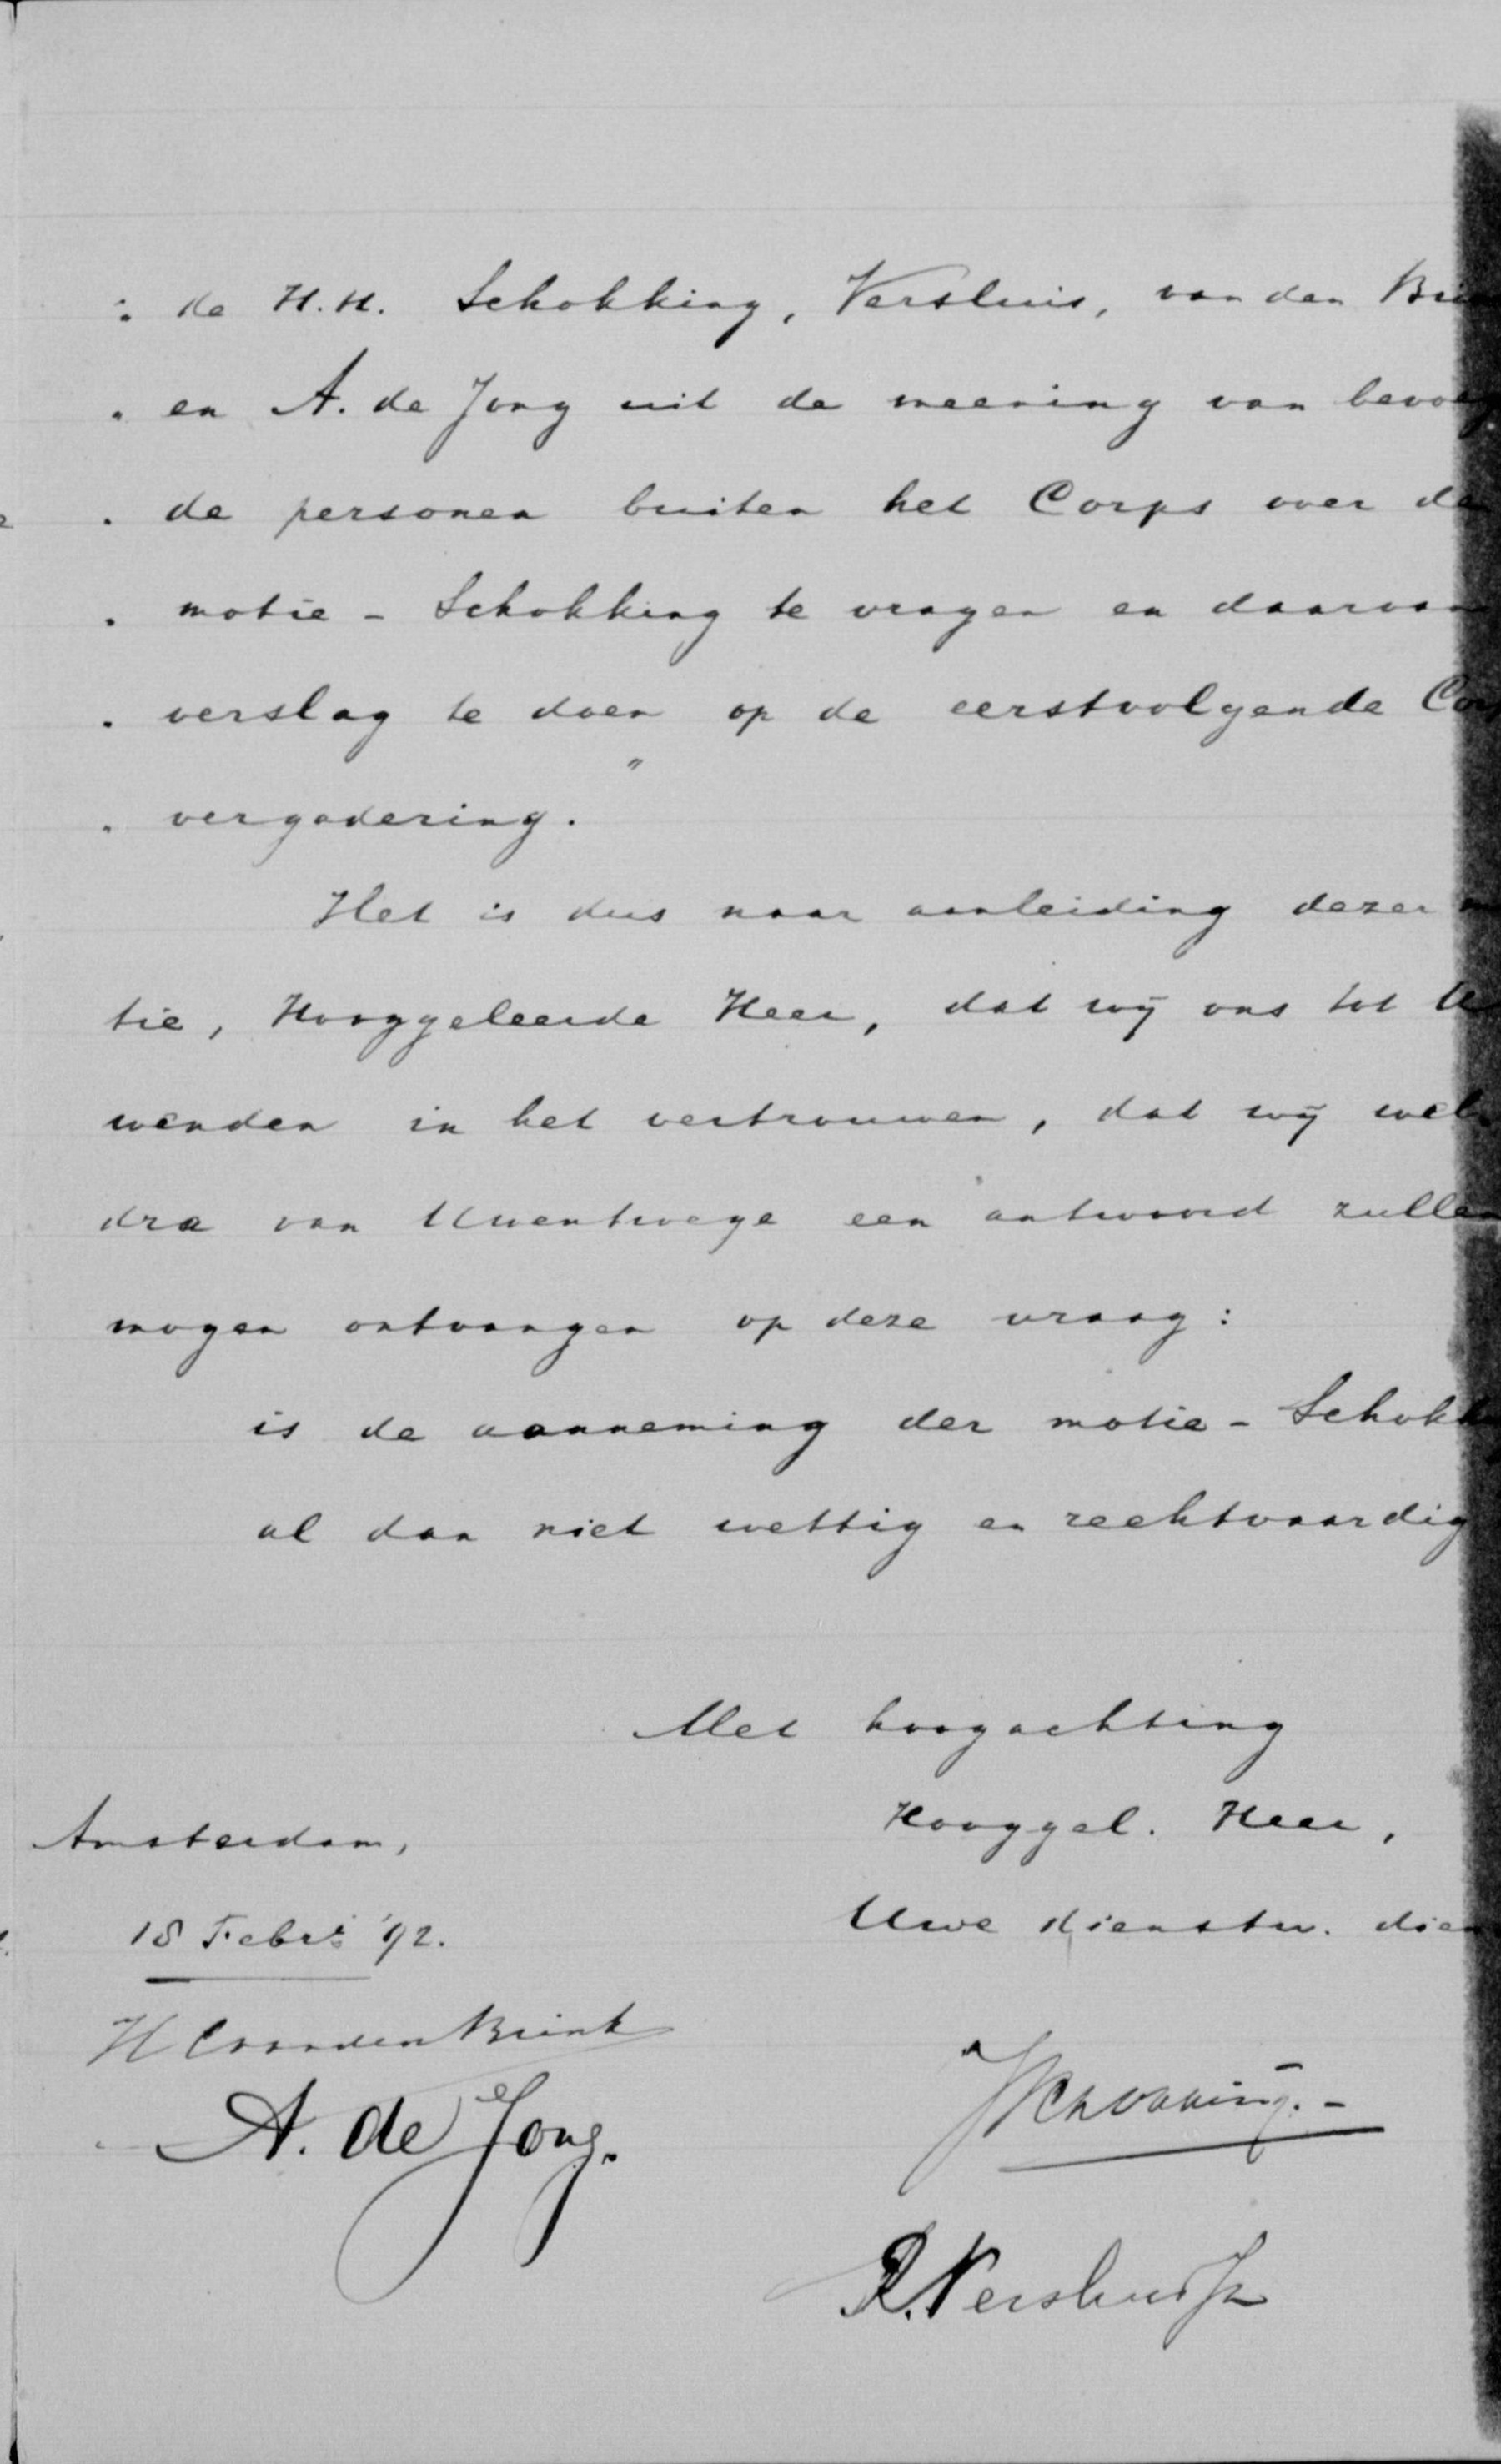 „ de H.H. Schokking, Versluis, van den Brin
„ en A. de Jong uit de meening van bevoeg
„ de personen buiten het Corps over de
„ motie - Schokking te vragen en daarvan
„ verslag te doen op de eerstvolgende Cor
„ vergadering."
Het is dus naar aanleiding dezer mo
tie, Hooggeleerde Heer, dat wij ons tot U
wenden in het vertrouwen, dat wij wel
dra van Uwentwege een antwoord zullen
mogen ontvangen op deze vraag:
is de aanneming der motie - Schokk
al dan niet wettig en rechtvaardig
Met hoogachting
Hooggel. Heer,
Uwe dienstw. dien
Amsterdam,
18 Febri '92.
H C van den Brink
A. de Jong.
JSchokking. -
R. Versluis Jr